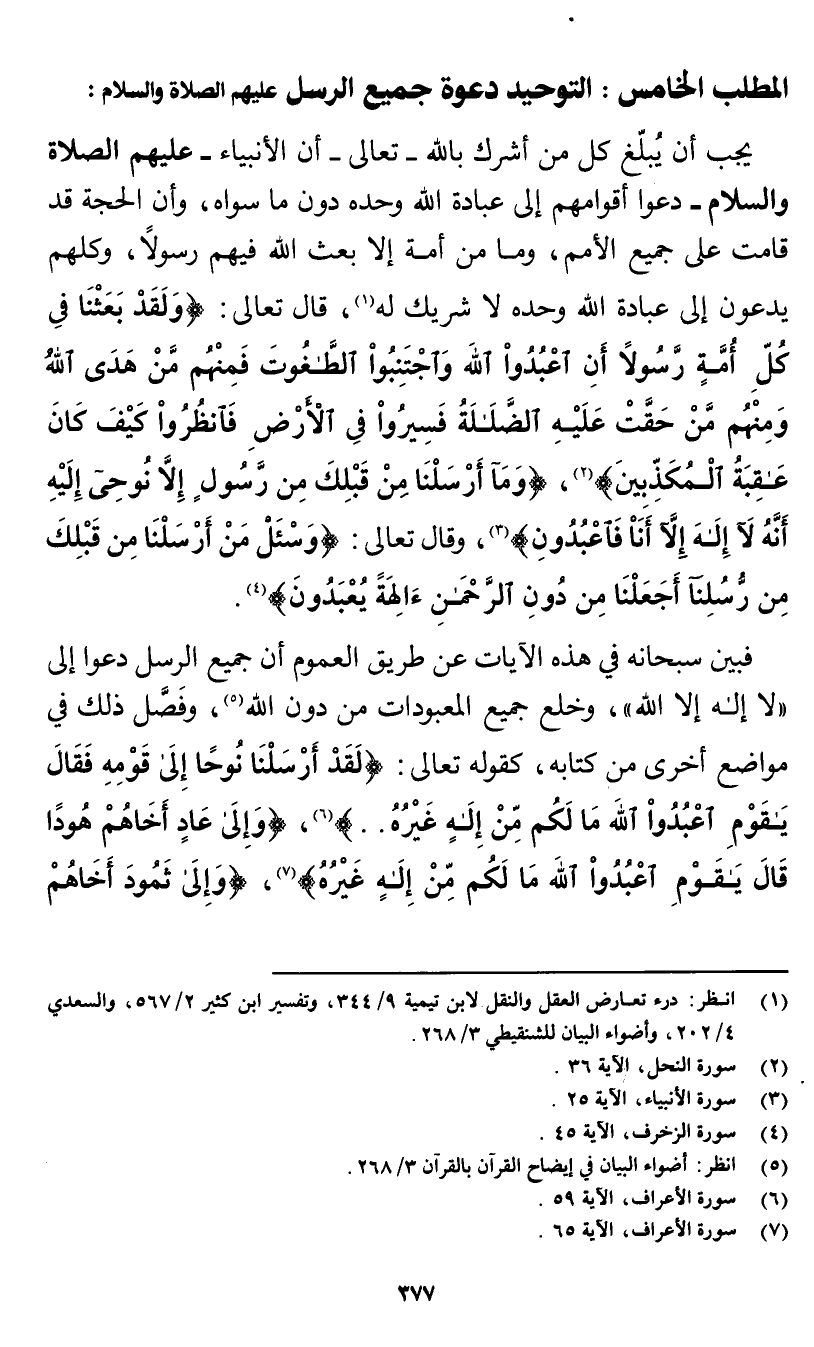 المطلب الخامس : التوحيد دعوة جميع الرسل عليهم الصلاة والسلام :
يجب أن يُبلّغ كل من أشرك بالله ـ تعالى ـ أن الأنبياء ـ عليهم الصلاة
والسلام ـ دعوا أقوامهم إلى عبادة الله وحده دون ما سواه، وأن الحجة قد
قامت على جميع الأمم، وما من أمة إلا بعث الله فيهم رسولًا، وكلهم
يدعون إلى عبادة الله وحده لا شريك له(١)، قال تعالى: ﴿وَلَقَدْ بَعَثْنَا فِي
كُلِّ أُمَّةٍ رَّسُولًا أَنِ ٱعْبُدُواْ ٱللَّهَ وَٱجْتَنِبُواْ ٱلطَّٰغُوتَ فَمِنْهُم مَّنْ هَدَى ٱللَّهُ
وَمِنْهُم مَّنْ حَقَّتْ عَلَيْهِ ٱلضَّلَٰلَةُ فَسِيرُواْ فِي ٱلْأَرْضِ فَٱنظُرُواْ كَيْفَ كَانَ
عَٰقِبَةُ ٱلْمُكَذِّبِينَ﴾(٢)، ﴿وَمَآ أَرْسَلْنَا مِنْ قَبْلِكَ مِن رَّسُولٍ إِلَّا نُوحِىٓ إِلَيْهِ
أَنَّهُ لَآ إِلَٰهَ إِلَّآ أَنَا۠ فَٱعْبُدُونِ﴾(٣)، وقال تعالى: ﴿وَسْئَلْ مَنْ أَرْسَلْنَا مِن قَبْلِكَ
مِن رُّسُلِنَآ أَجَعَلْنَا مِن دُونِ ٱلرَّحْمَٰنِ ءَالِهَةً يُعْبَدُونَ﴾(٤).
فبين سبحانه في هذه الآيات عن طريق العموم أن جميع الرسل دعوا إلى
«لا إلٰه إلا الله»، وخلع جميع المعبودات من دون الله(٥)، وفَصَّل ذلك في
مواضع أخرى من كتابه، كقوله تعالى: ﴿لَقَدْ أَرْسَلْنَا نُوحًا إِلَىٰ قَوْمِهِ فَقَالَ
يَٰقَوْمِ ٱعْبُدُواْ ٱللَّهَ مَا لَكُم مِّنْ إِلَٰهٍ غَيْرُهُ . .﴾(٦)، ﴿وَإِلَىٰ عَادٍ أَخَاهُمْ هُودًا
قَالَ يَٰقَوْمِ ٱعْبُدُواْ ٱللَّهَ مَا لَكُم مِّنْ إِلَٰهٍ غَيْرُهُ﴾(٧)، ﴿وَإِلَىٰ ثَمُودَ أَخَاهُمْ
(١) انظر: درء تعارض العقل والنقل لابن تيمية ٩/ ٣٤٤، وتفسير ابن كثير ٢/ ٥٦٧، والسعدي
٤/ ٢٠٢، وأضواء البيان للشنقيطي ٣/ ٢٦٨.
(٢) سورة النحل، الآية ٣٦ .
(٣) سورة الأنبياء، الآية ٢٥ .
(٤) سورة الزخرف، الآية ٤٥ .
(٥) انظر: أضواء البيان في إيضاح القرآن بالقرآن ٣/ ٢٦٨.
(٦) سورة الأعراف، الآية ٥٩ .
(٧) سورة الأعراف، الآية ٦٥ .
٣٧٧